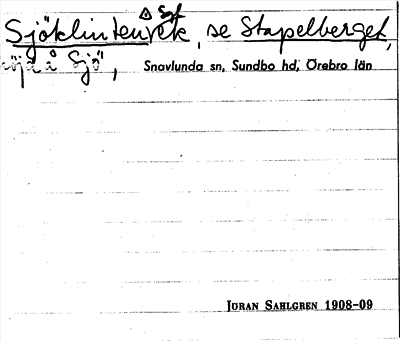 Sjöklinten, se Stapelberget,
höjd å Sjö, Snavlunda sn, Sundbo hd, Örebro län
JÖRAN SAHLGREN 1908-09